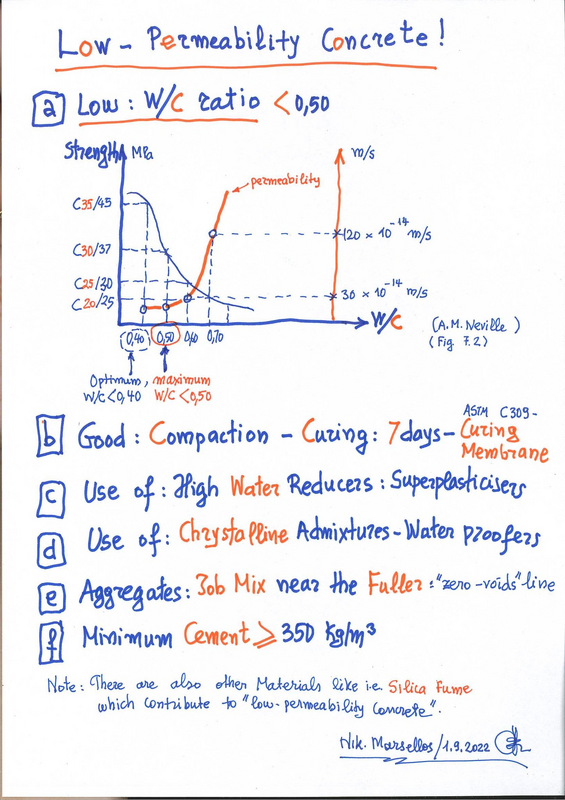 Low - Permeability Concrete!
a Low: W/C ratio < 0,50
Strength MPa
m/s
permeability
C35/45
C30/37
120 × 10⁻¹⁴ m/s
C25/30
C20/25
30 × 10⁻¹⁴ m/s
W/C
(A.M. Neville)
(Fig 7.2)
0,40 0,50 0,60 0,70
Optimum, maximum
W/C<0,40 W/C<0,50
b Good: Compaction - Curing: 7days - ASTM C309-
Curing
Membrane
c Use of: High Water Reducers: Superplasticisers
d Use of: Chrystalline Admixtures - Water proofers
e Aggregates: Job Mix near the Fuller: "zero-voids" line
f Minimum Cement ≥ 350 Kg/m³
Note: There are also other Materials like i.e. Silica Fume
which contribute to "low-permeability concrete".
Nik. Marsellos/1.9.2022